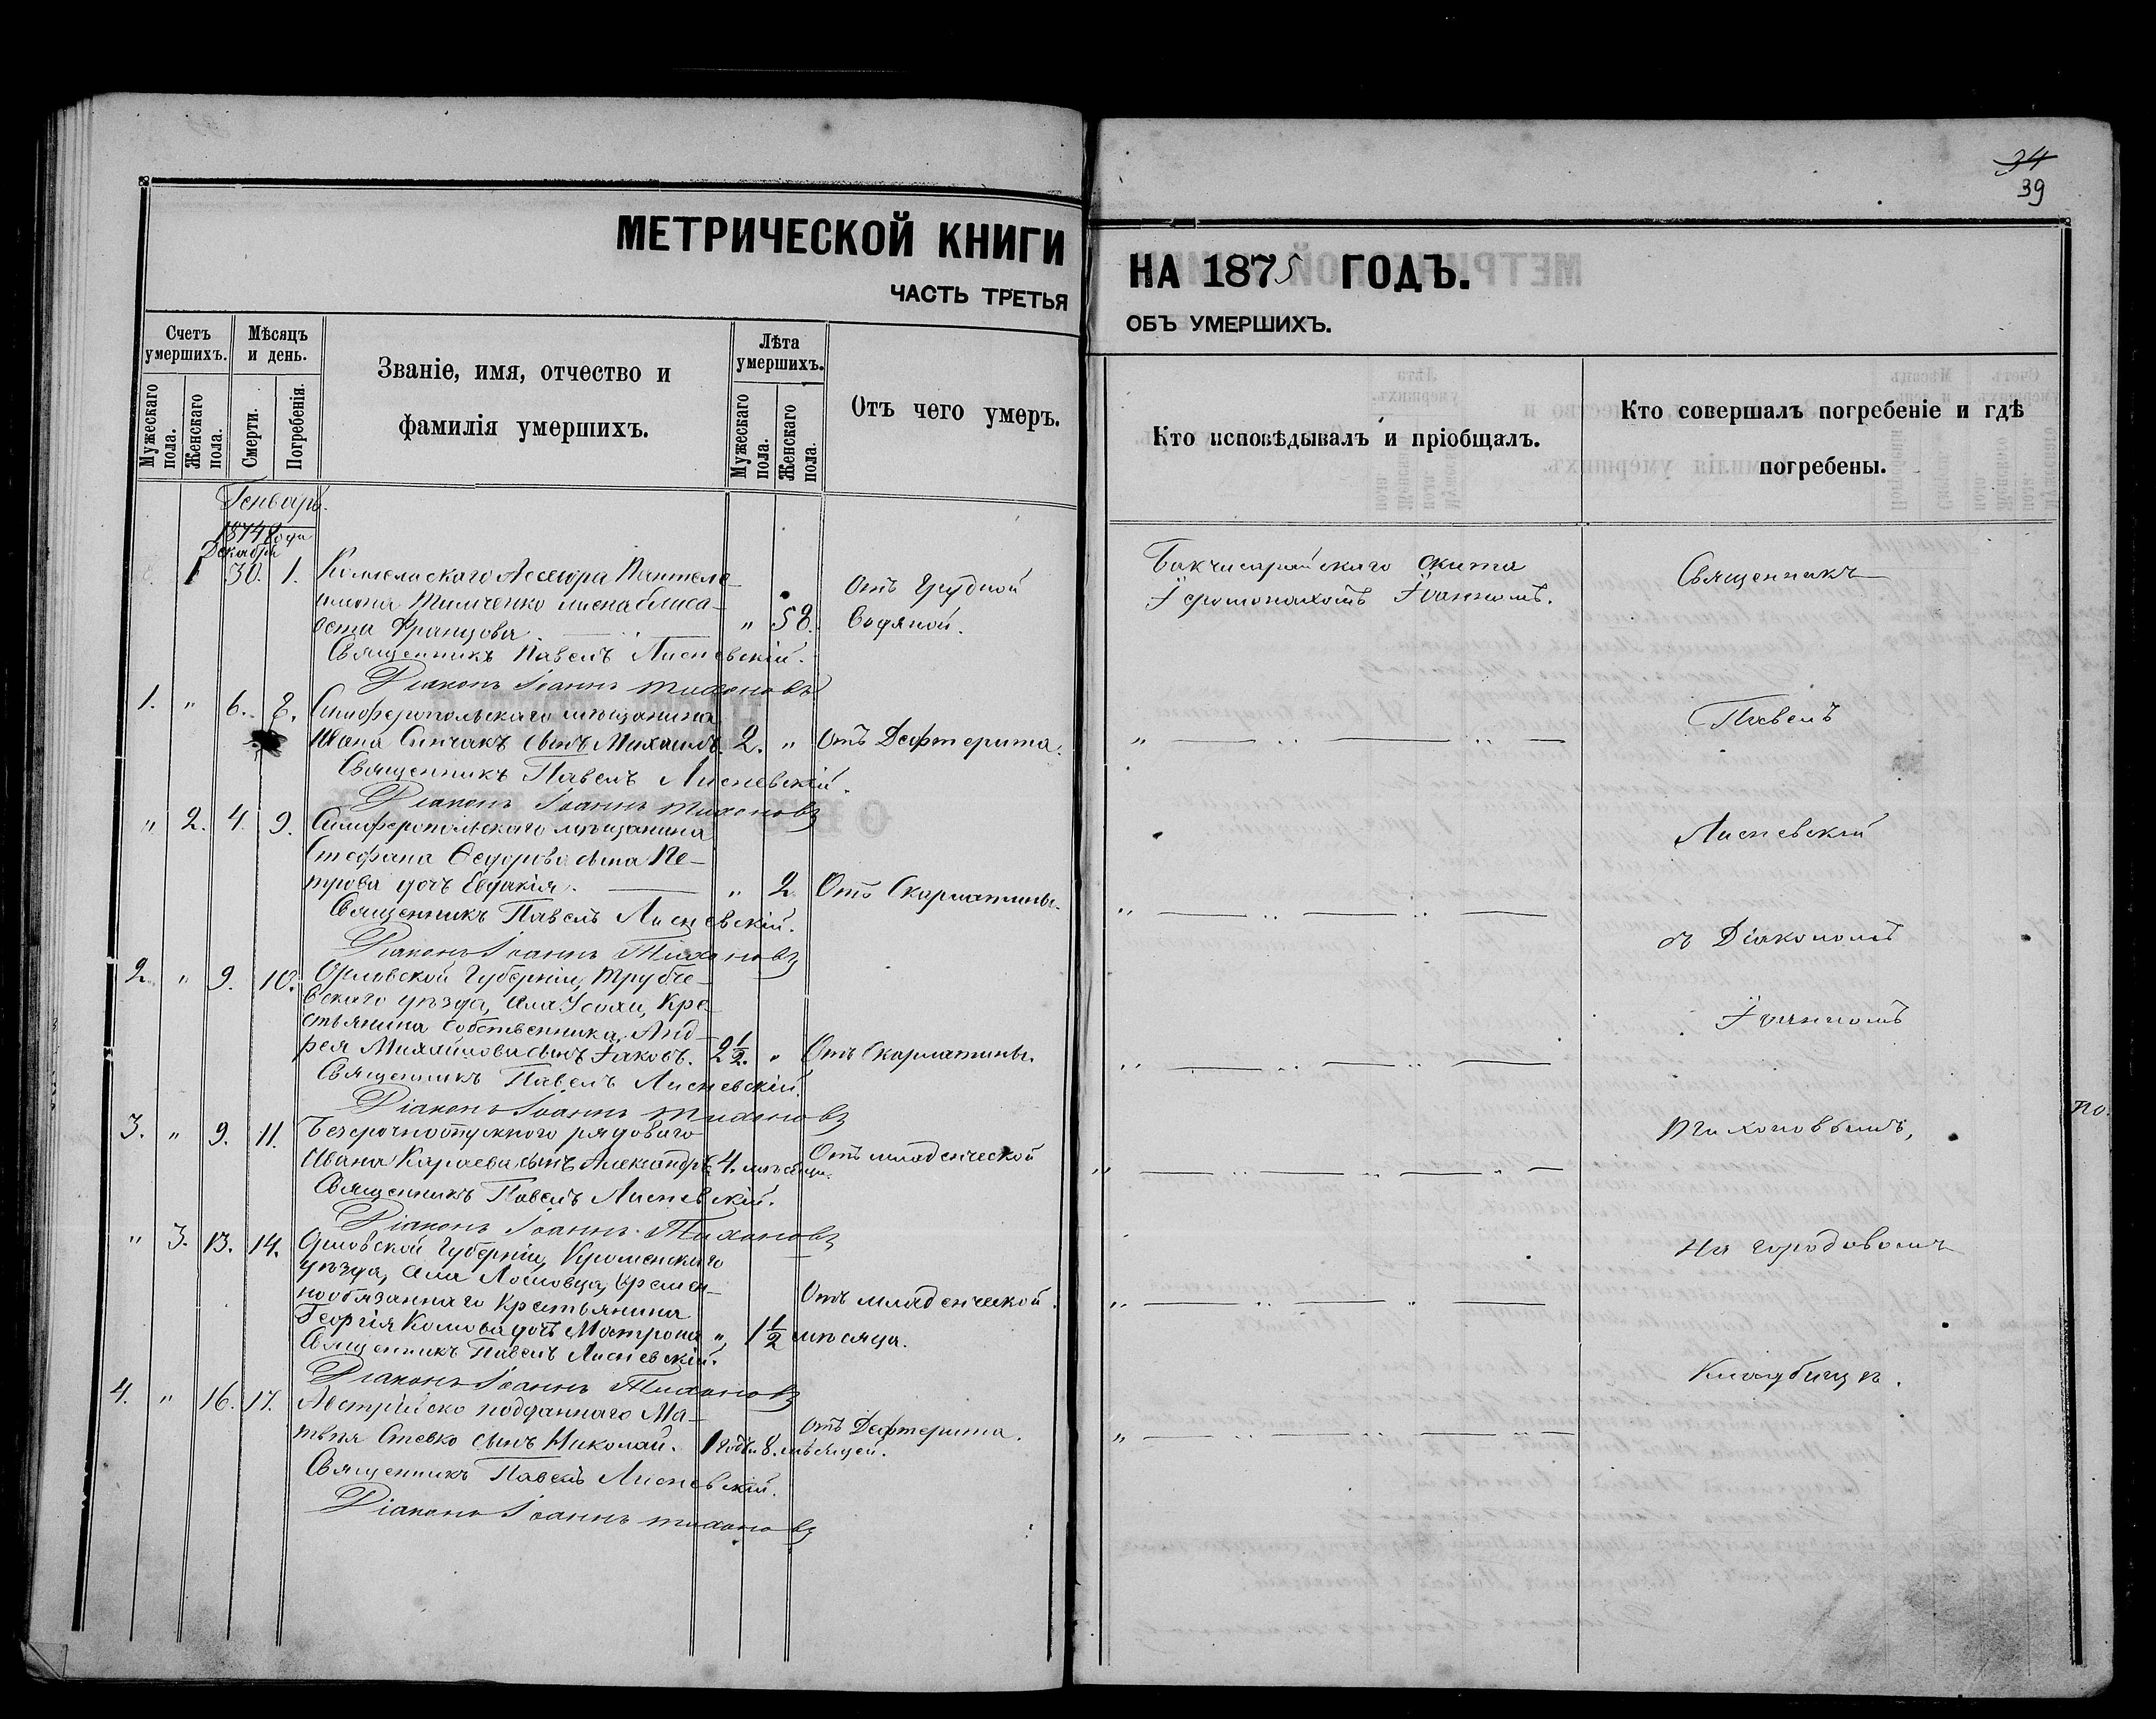 34
39
МЕТРИЧЕСКОЙ КНИГИ
НА 1875 ГОДЪ.
ЧАСТЬ ТРЕТЬЯ
ОБЪ УМЕРШИХЪ.
Счетъ умершихъ.
Мѣсяцъ и день.
Званіе, имя, отчество и фамилія умершихъ.
Лѣта умершихъ.
Отъ чего умеръ.
Кто исповѣдывалъ и пріобщалъ.
Кто совершалъ погребеніе и гдѣ погребены.
Мужескаго пола.
Женскаго пола.
Смерти.
Погребенія.
Мужескаго пола.
Женскаго пола.
Генварь.
1874 года
Декабря
1 30. 1. Коллежскаго Ассесора Пантеле-
имона Тимченко жена
Францова " 58.
Отъ Грудной
Водяной.
Бакчисарайскаго скита
Іеромонахомъ Іоанномъ.
Священникъ
Священникъ Павелъ Лисневскій.
Діаконъ Іоаннъ Тихоновъ
1. " 6. 8. Симферопольскаго мѣщанина
Ивана Синчакъ сынъ Михаилъ. 2. " Отъ Дефтерита.
Павелъ
Священникъ Павелъ Лисневскій.
Діаконъ Іоаннъ Тихоновъ
" 2. 4. 9. Симферопольскаго мѣщанина
Стефана Ѳедорова сына Пе-
трова дочь Евдакія. " 2. Отъ Скарлатины.
Лисневскій
Священникъ Павелъ Лисневскій.
Діаконъ Іоаннъ Тихоновъ
съ Діакономъ
2. " 9. 10. Орловской Губерніи, Трубче-
вскаго уѣзда, села Усохи, Кре-
стьянина собственника, Анд-
рея Михайлова сынъ Іаковъ. 2½. " Отъ Скарлатины.
Іоанномъ
Священникъ Павелъ Лисневскій.
Діаконъ Іоаннъ Тихоновъ
3. " 9. 11. Безсрочноотпускного рядоваго
Ивана Караева сынъ Александръ 4. мѣсяца.
Отъ младенческой
Тихоновымъ,
по.
Священникъ Павелъ Лисневскій.
Діаконъ Іоаннъ Тихоновъ
" 3. 13. 14. Орловской Губерніи, Кроменскаго
уѣзда, села Лошовца, Времен-
нообязаннаго Крестьянина
Георгія Комова дочь Матрона " 1½ мѣсяца.
Отъ младенческой.
На городовомъ
Священникъ Павелъ Лисневскій.
Діаконъ Іоаннъ Тихоновъ
Кладбищѣ.
4. " 16. 17. Австрійско подданнаго Ма-
твѣя Стевко сынъ Николай. 1 годъ и 8. мѣсяцей.
Отъ Дефтерита.
Священникъ Павелъ Лисневскій.
Діаконъ Іоаннъ Тихоновъ